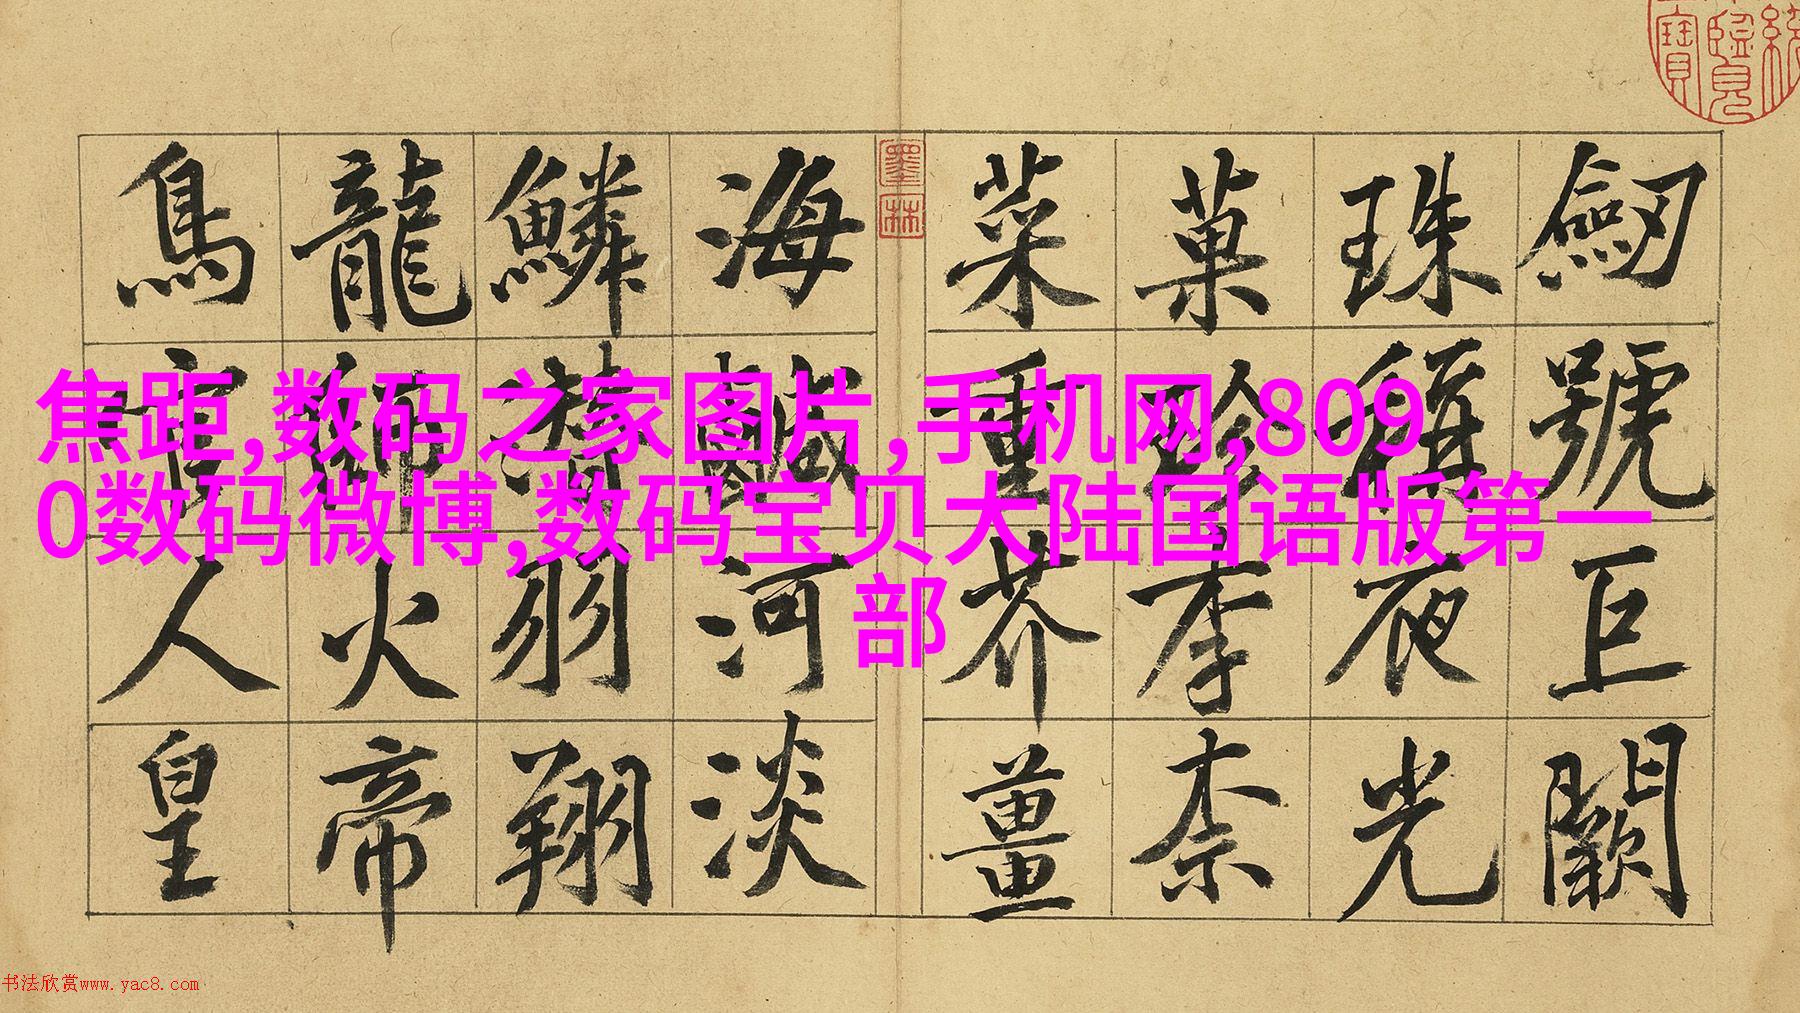 劒號巨闕
珠稱夜光
菓珍李柰
菜重芥薑
墨林
海鹹河淡
鱗潛羽翔
龍師火帝
鳥官人皇
焦距,数码之家图片,手机网,809
0数码微博,数码宝贝大陆国语版第一
部
书法欣赏www.yac8.com